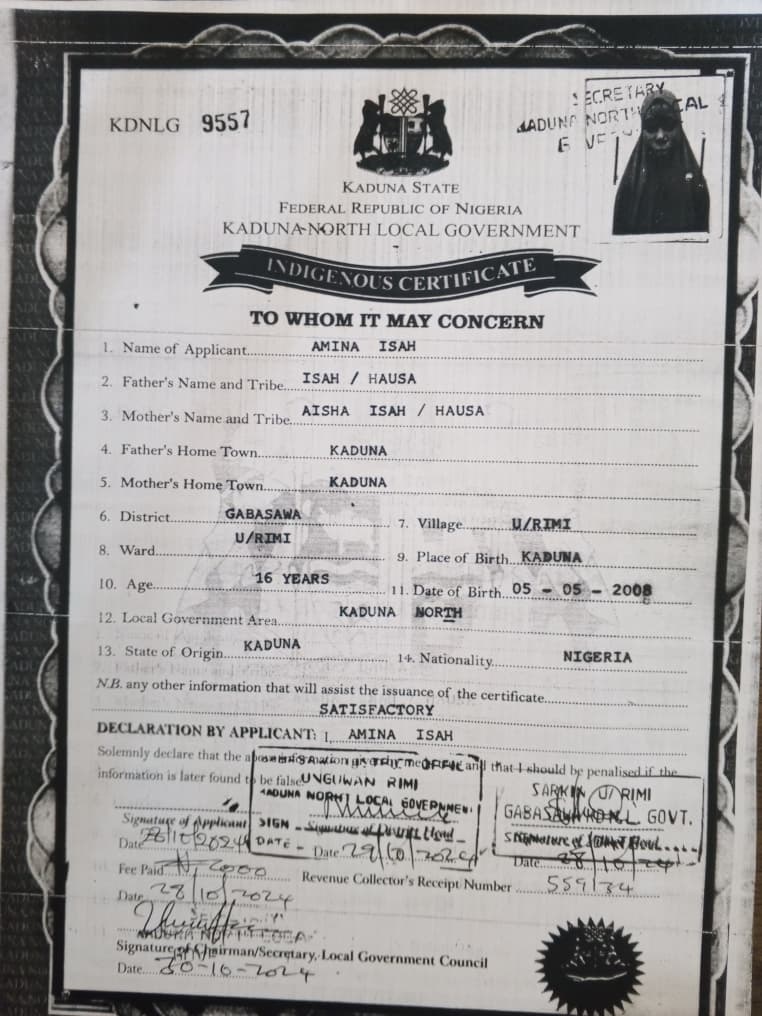 KDNLG 9557
SECRETARY
KADUNA NORTH LOCAL
KADUNA STATE
FEDERAL REPUBLIC OF NIGERIA
KADUNA-NORTH LOCAL GOVERNMENT
INDIGENOUS CERTIFICATE
TO WHOM IT MAY CONCERN
1. Name of Applicant AMINA ISAH
2. Father's Name and Tribe ISAH / HAUSA
3. Mother's Name and Tribe AISHA ISAH / HAUSA
4. Father's Home Town KADUNA
5. Mother's Home Town KADUNA
6. District GABASAWA 7. Village U/RIMI
8. Ward U/RIMI 9. Place of Birth KADUNA
10. Age 16 YEARS 11. Date of Birth 05 - 05 - 2008
12. Local Government Area KADUNA NORTH
13. State of Origin KADUNA 14. Nationality NIGERIA
N.B. any other information that will assist the issuance of the certificate
SATISFACTORY
DECLARATION BY APPLICANT: I, AMINA ISAH
Solemnly declare that the and that I should be penalised if the
information is later found to be false
OFFICE
UNGUWAN RIMI
KADUNA NORTH LOCAL GOVERNMENT
SIGN - Signature of District Head
DATE - Date 29/10/2024
SARKIN U/RIMI
GABASAWA GOVT.
Signature of
Date 28/10/24
Signature of Applicant
Date
Fee Paid N 2000
Revenue Collector's Receipt Number 559134
Date 28/10/2024
Signature of Chairman/Secretary, Local Government Council
Date 30-10-2024